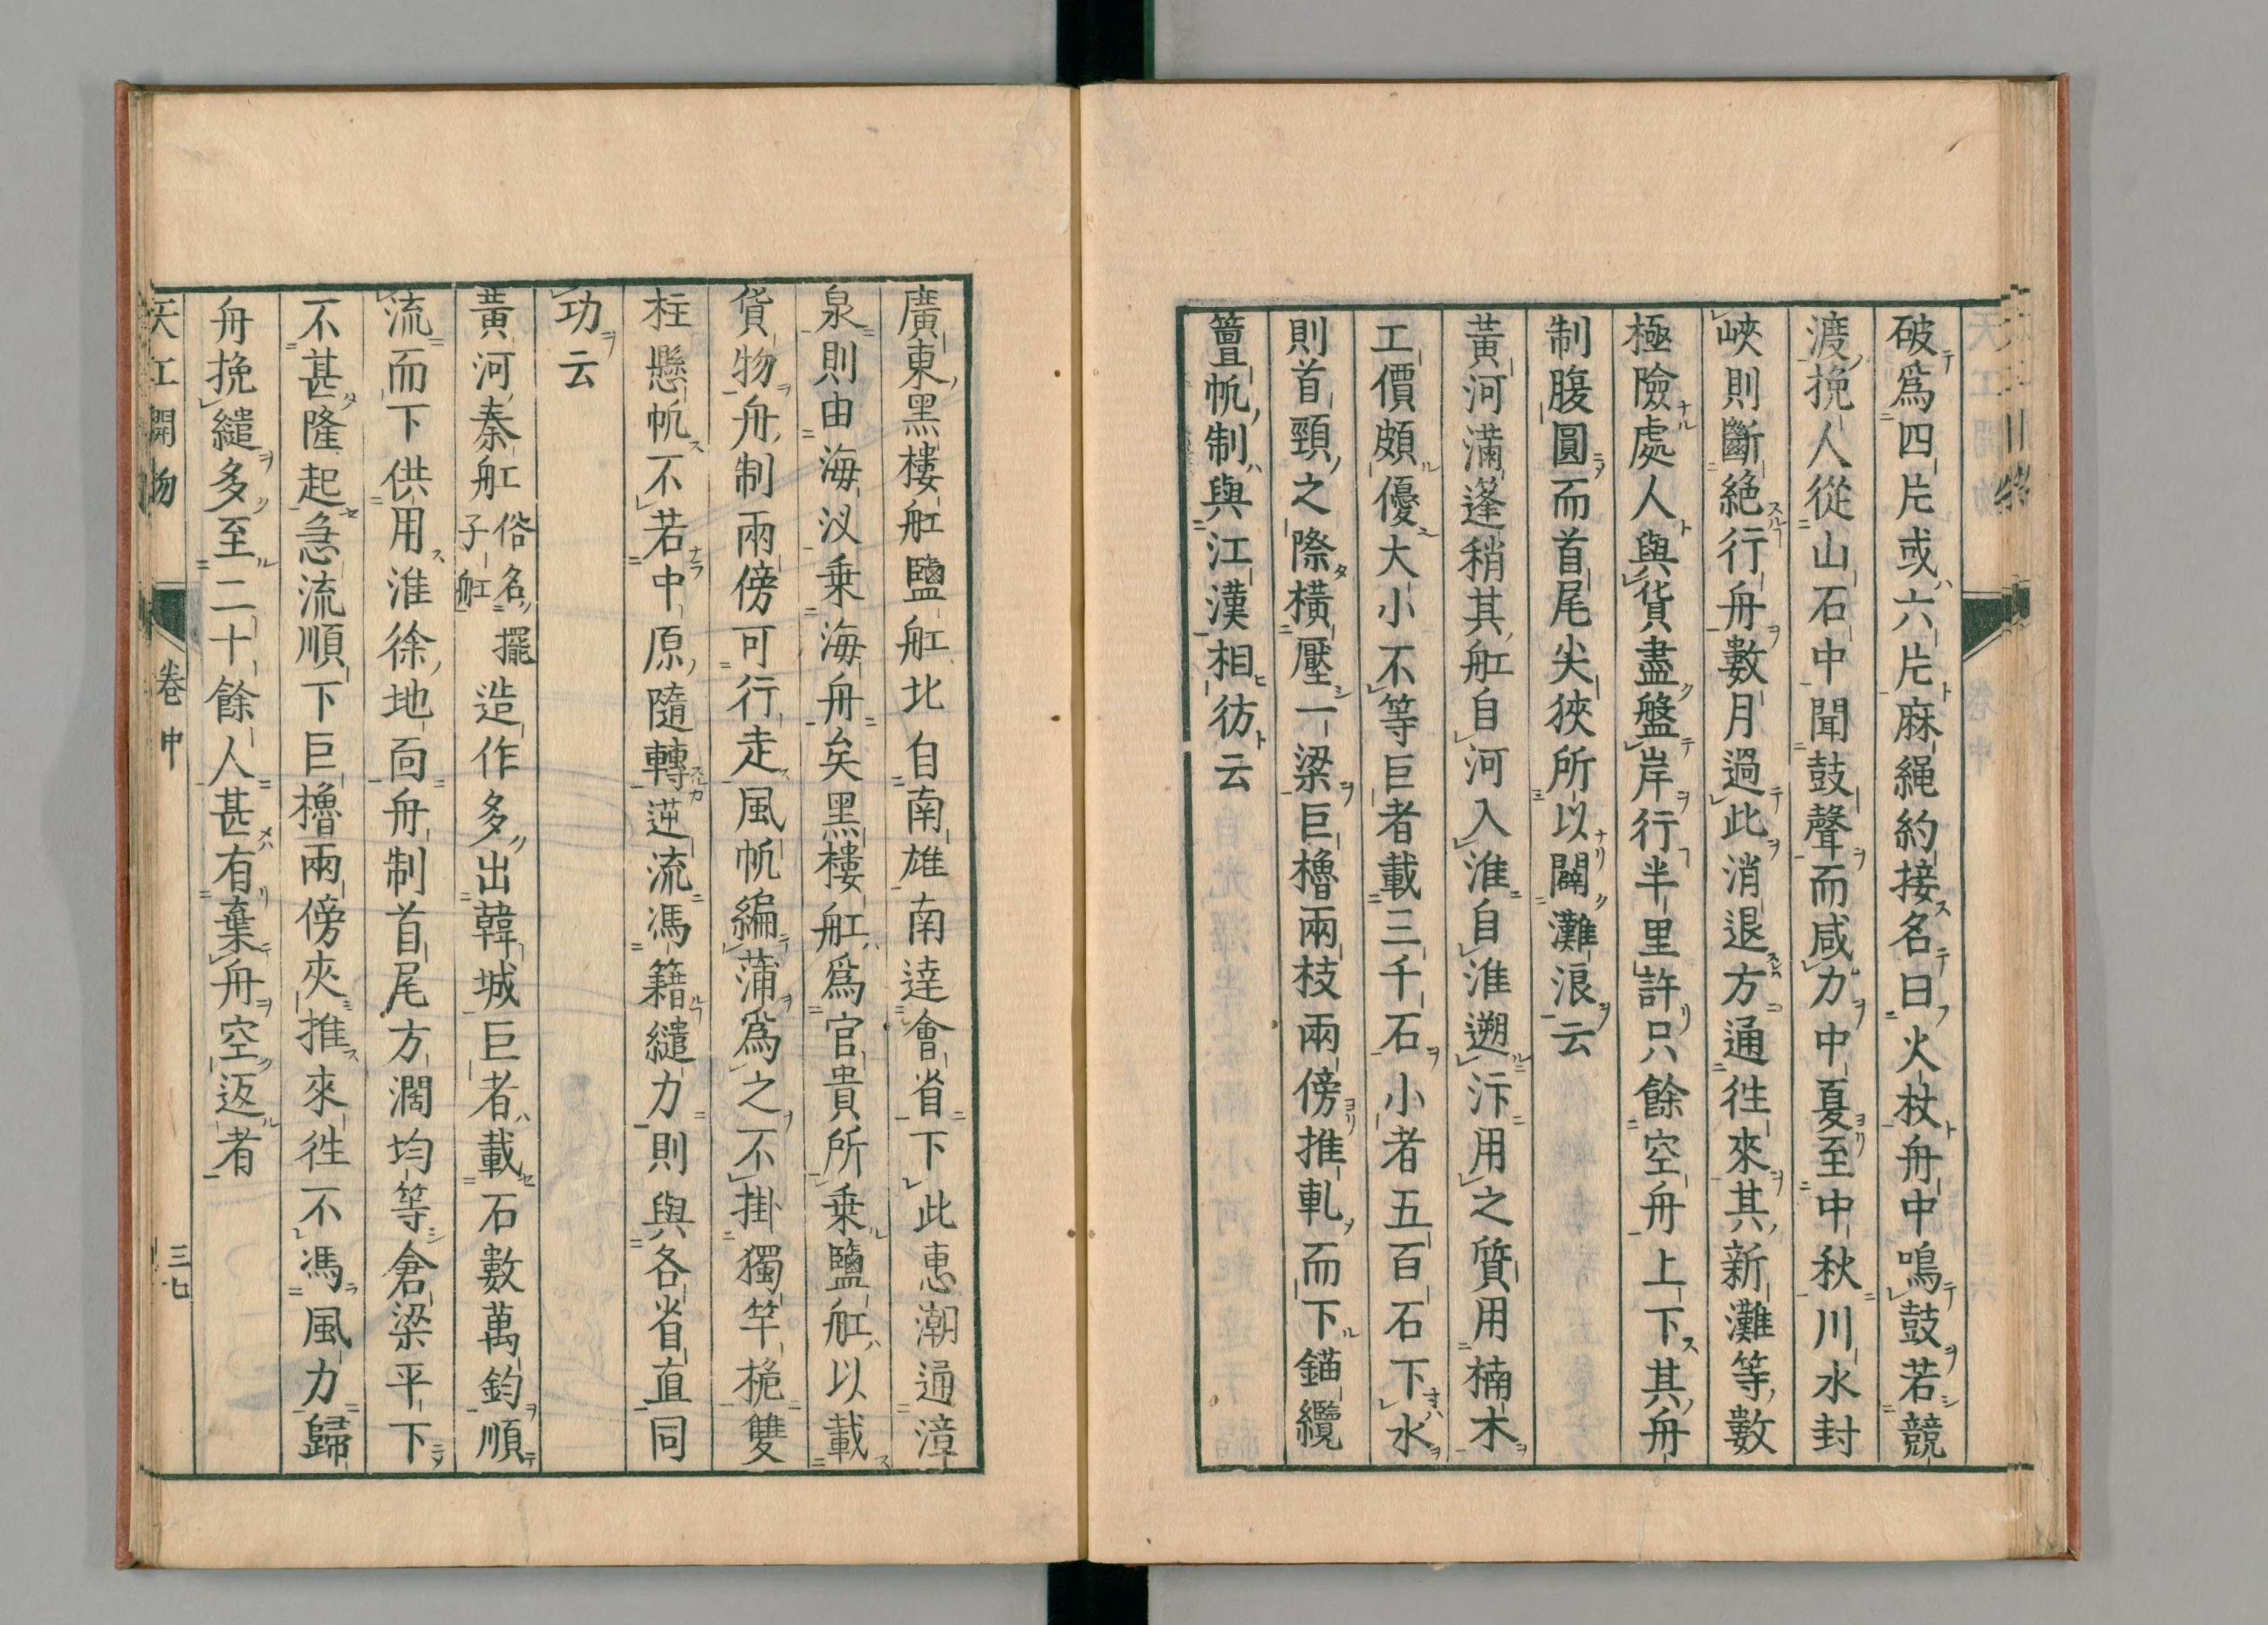 破爲四片或六片麻繩約接名曰火杖舟中鳴鼓若競
渡挽人從山石中聞鼓聲而咸力中夏至中秋川水封
峽則斷絶行舟數月過此消退方通徃來其新灘等數
極險處人與貨盡盤岸行半里許只餘空舟上下其舟
制腹圓而首尾尖狹所以闢灘浪云
黃河滿篷稍其舡自河入淮自淮遡汴用之質用楠木
工價頗優大小不等巨者載三千石小者五百石下水
則首頸之際橫壓一梁巨櫓兩枝兩傍推軋而下錨纜
簹帆制與江漢相彷云
廣東黑樓舡鹽舡北自南雄南達會省下此惠潮通漳
泉則由海汊乗海舟矣黑樓舡爲官貴所乗鹽舡以載
貨物舟制兩傍可行走風帆編蒲爲之不掛獨竿桅雙
柱懸帆不若中原隨轉逆流馮籍纜力則與各省直同
功云
黃河秦舡俗名擺子舡造作多出韓城巨者載石數萬鈞順
流而下供用淮徐地面舟制首尾方濶均等倉梁平下
不甚隆起急流順下巨櫓兩傍夾推來徃不馮風力歸
舟挽繾多至二十餘人甚有棄舟空返者
天工開物 卷中 三七